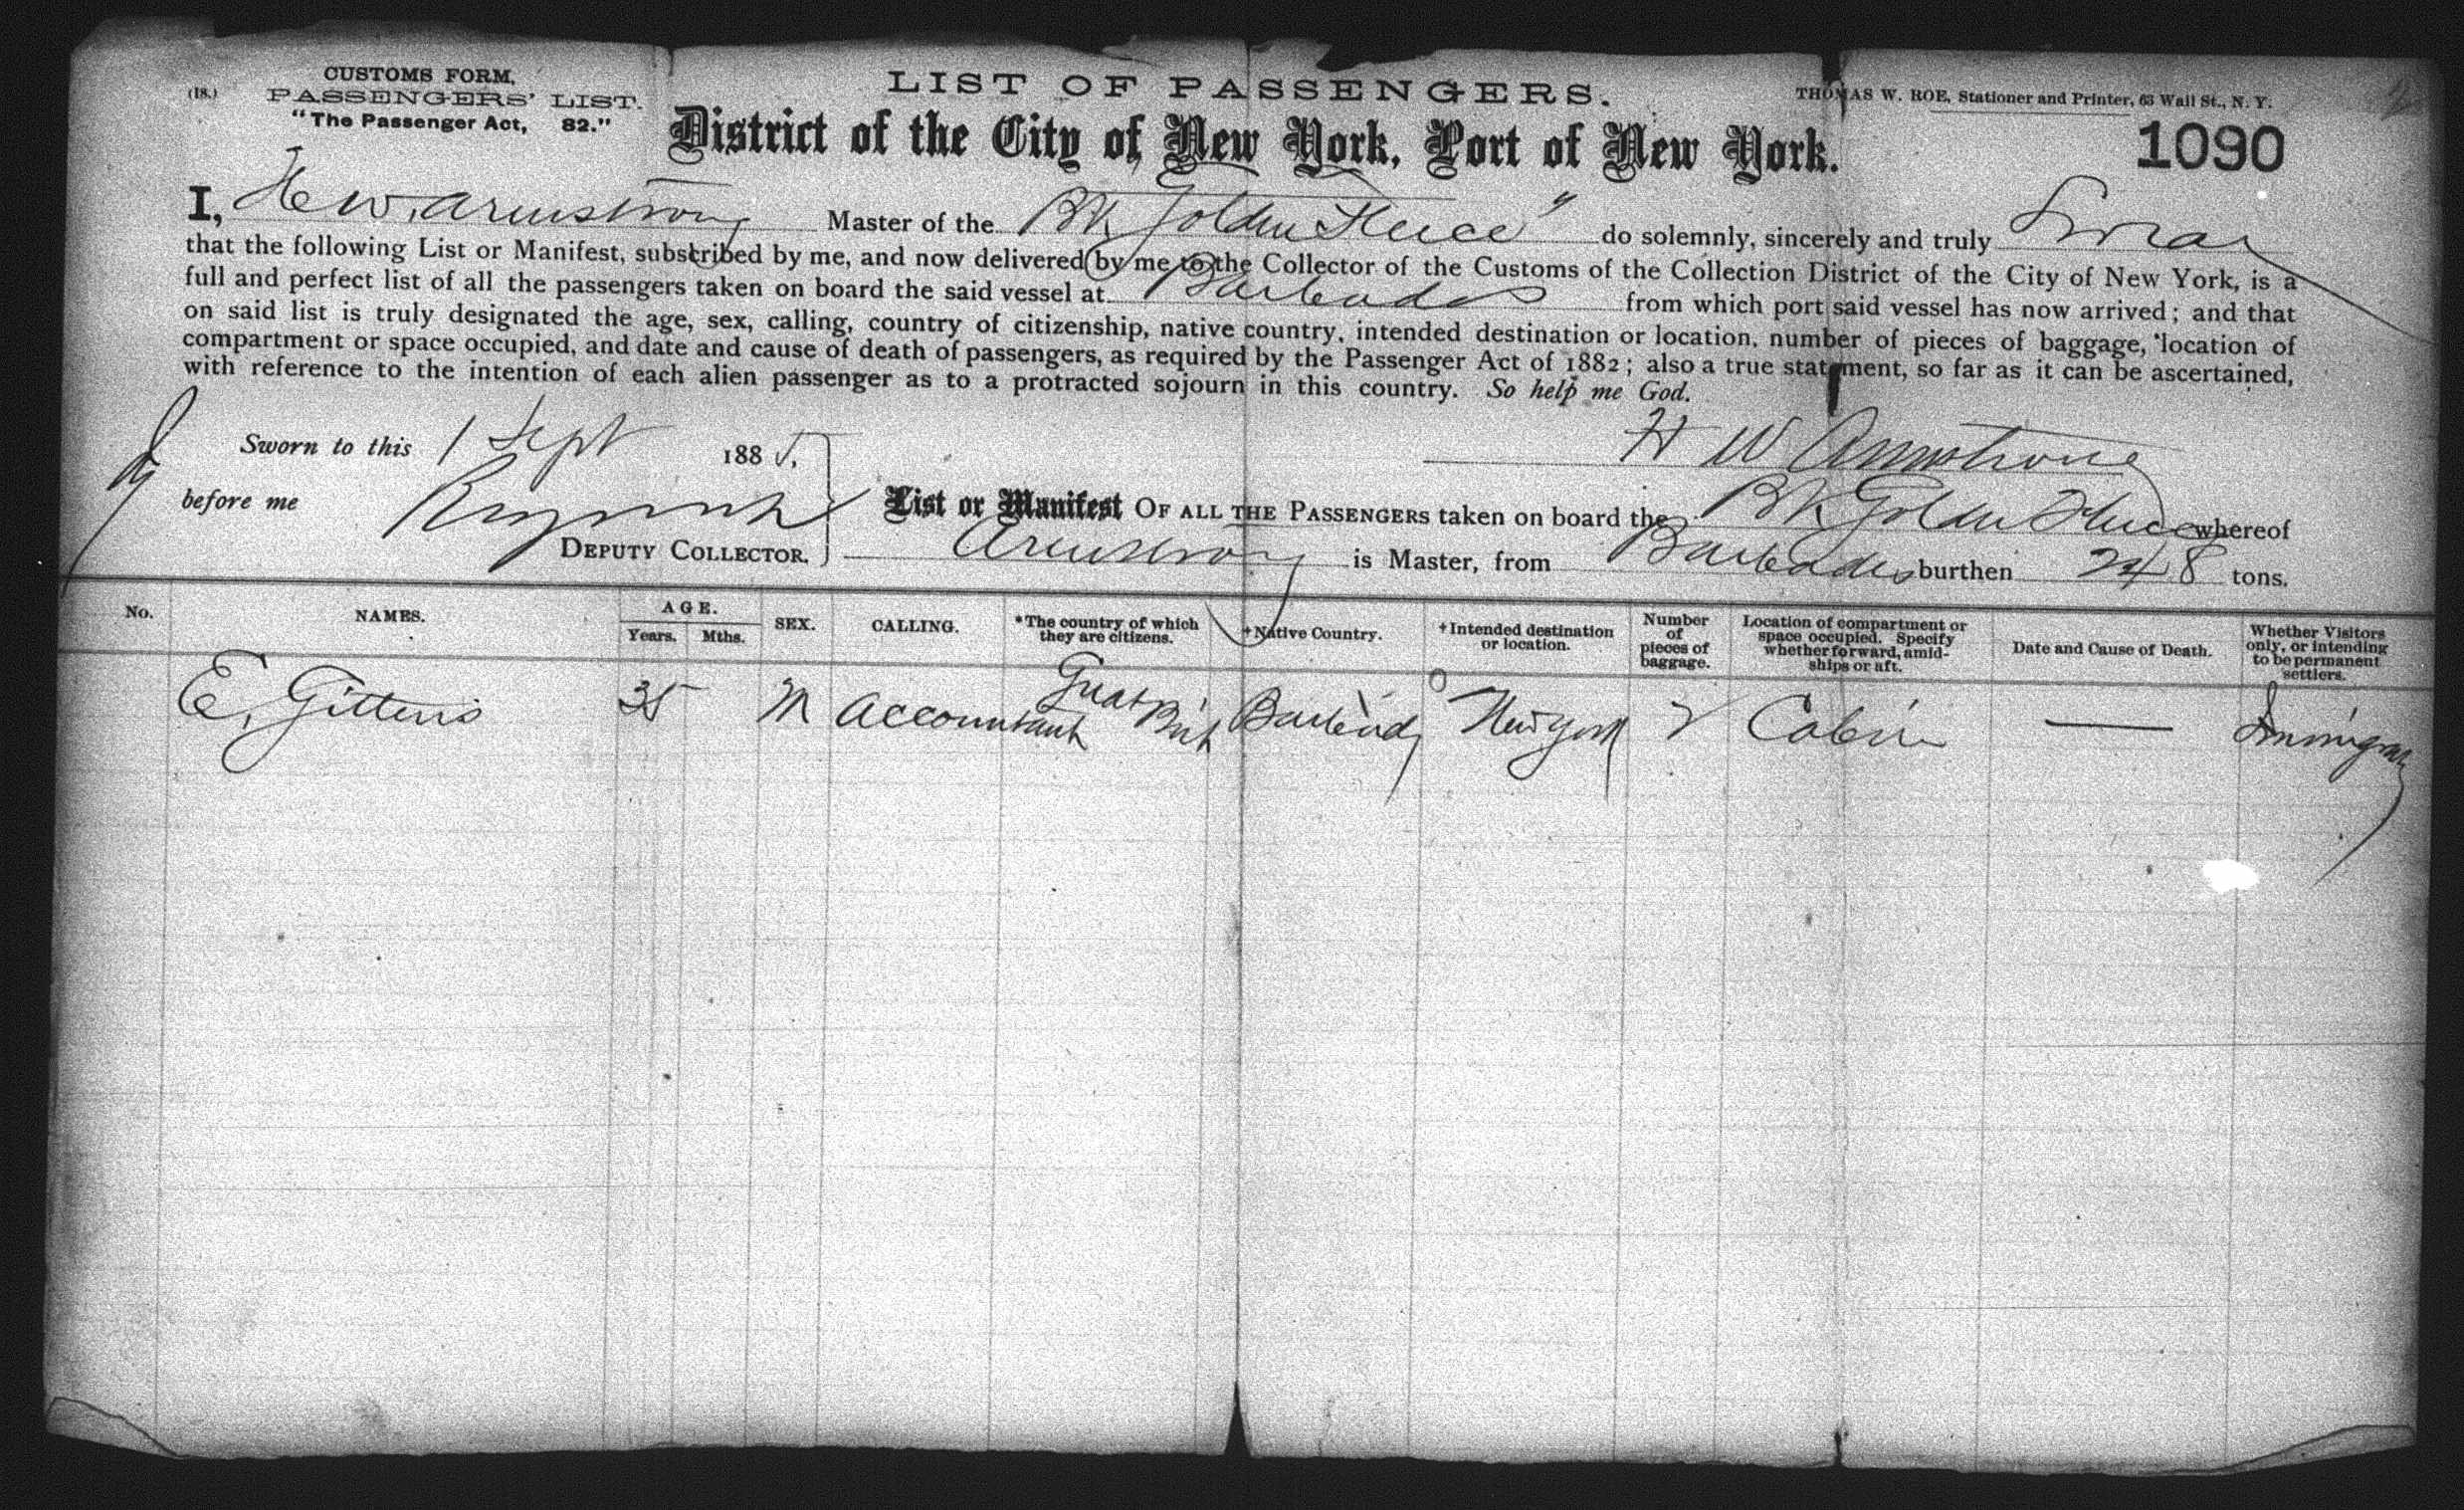 CUSTOMS FORM.
(18.) PASSENGERS' LIST.
"The Passenger Act, 82."
LIST OF PASSENGERS.
THOMAS W. ROE, Stationer and Printer, 63 Wall St., N. Y.
District of the City of New York, Port of New York.
1090
I, H W. Armstrong Master of the Bk Golden Fleece" do solemnly, sincerely and truly Swear
that the following List or Manifest, subscribed by me, and now delivered by me to the Collector of the Customs of the Collection District of the City of New York, is a
full and perfect list of all the passengers taken on board the said vessel at Barbados from which port said vessel has now arrived; and that
on said list is truly designated the age, sex, calling, country of citizenship, native country, intended destination or location, number of pieces of baggage, location of
compartment or space occupied, and date and cause of death of passengers, as required by the Passenger Act of 1882; also a true statement, so far as it can be ascertained,
with reference to the intention of each alien passenger as to a protracted sojourn in this country. So help me God.
Sworn to this 1 Sept 1885.
H W Armstrong
before me
DEPUTY COLLECTOR.
List or Manifest OF ALL THE PASSENGERS taken on board the Bk Golden Fleece whereof
Armstrong is Master, from Barbados burthen 248 tons.
No. NAMES. AGE. Years. Mths. SEX. CALLING. *The country of which they are citizens. †Native Country. †Intended destination or location. Number of pieces of baggage. Location of compartment or space occupied. Specify whether forward, amidships or aft. Date and Cause of Death. Whether Visitors only, or intending to be permanent settlers.
E. Gittens 35 M Accountant Great Brit Barbados New York Cabin — Immigrant